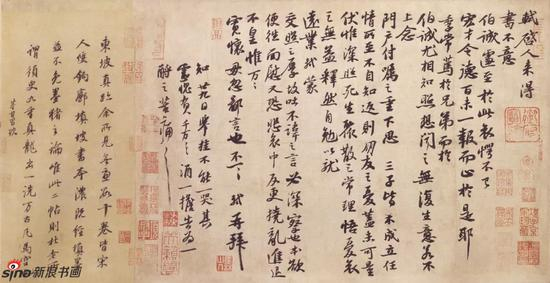 軾啓人来得
書不意
伯誠遽至於此哀愕不已
宏才令德百未一報而止於是耶
季常篤於兄弟而於
伯誠尤相知照想聞之無復生意若不
上念
門户付囑之重下思三子皆不成立任
情所至不自知返則朋友之憂蓋未可量
伏惟深照死生聚散之常理悟憂哀
之無益釋然自勉以就
遠業軾蒙
交照之厚故吐不諱之言必深察也本欲
便往面慰又恐悲哀中反更撓亂進退
不皇惟万万
寬懷毋忽鄙言也不一一軾再拜
知廿九日舉掛不能一哭其
靈愧負千万千万酒一擔告為一
酹之苦痛苦痛
東坡真跡余所見無慮數十卷皆宋
人雙鉤廓填坡書本濃既經填墨
益不免墨豬之論唯此二帖則杜老所
謂須臾九重真龍出一洗萬古凡馬空
董其昌題
sina新浪书画